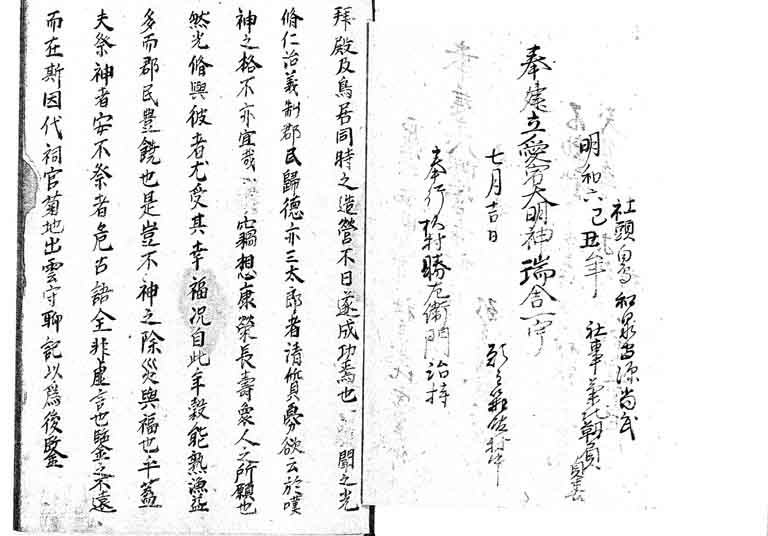 社頭 和泉 源尚武
明和六己丑年 社事 菊地 貞善
奉建立愛宕大明神瑞舎一宇
七月吉日
奉行 村勝右衛門治持
拜殿及鳥居同時之造營不日遂成功焉也 聞之光
脩仁治義制郡民歸德亦三太郎者清質 欲云於嘆
神之格不亦宜哉 竊想康榮長壽衆人之所願也
然光脩與彼者尤受其幸福况自此年穀能熟漁益
多而郡民豊饒也是豈不神之除災與福也乎蓋
夫祭神者安不祭者危古語全非虚言也鑒之不遠
而在斯因代祠官菊地出雲守聊記以爲後鑒